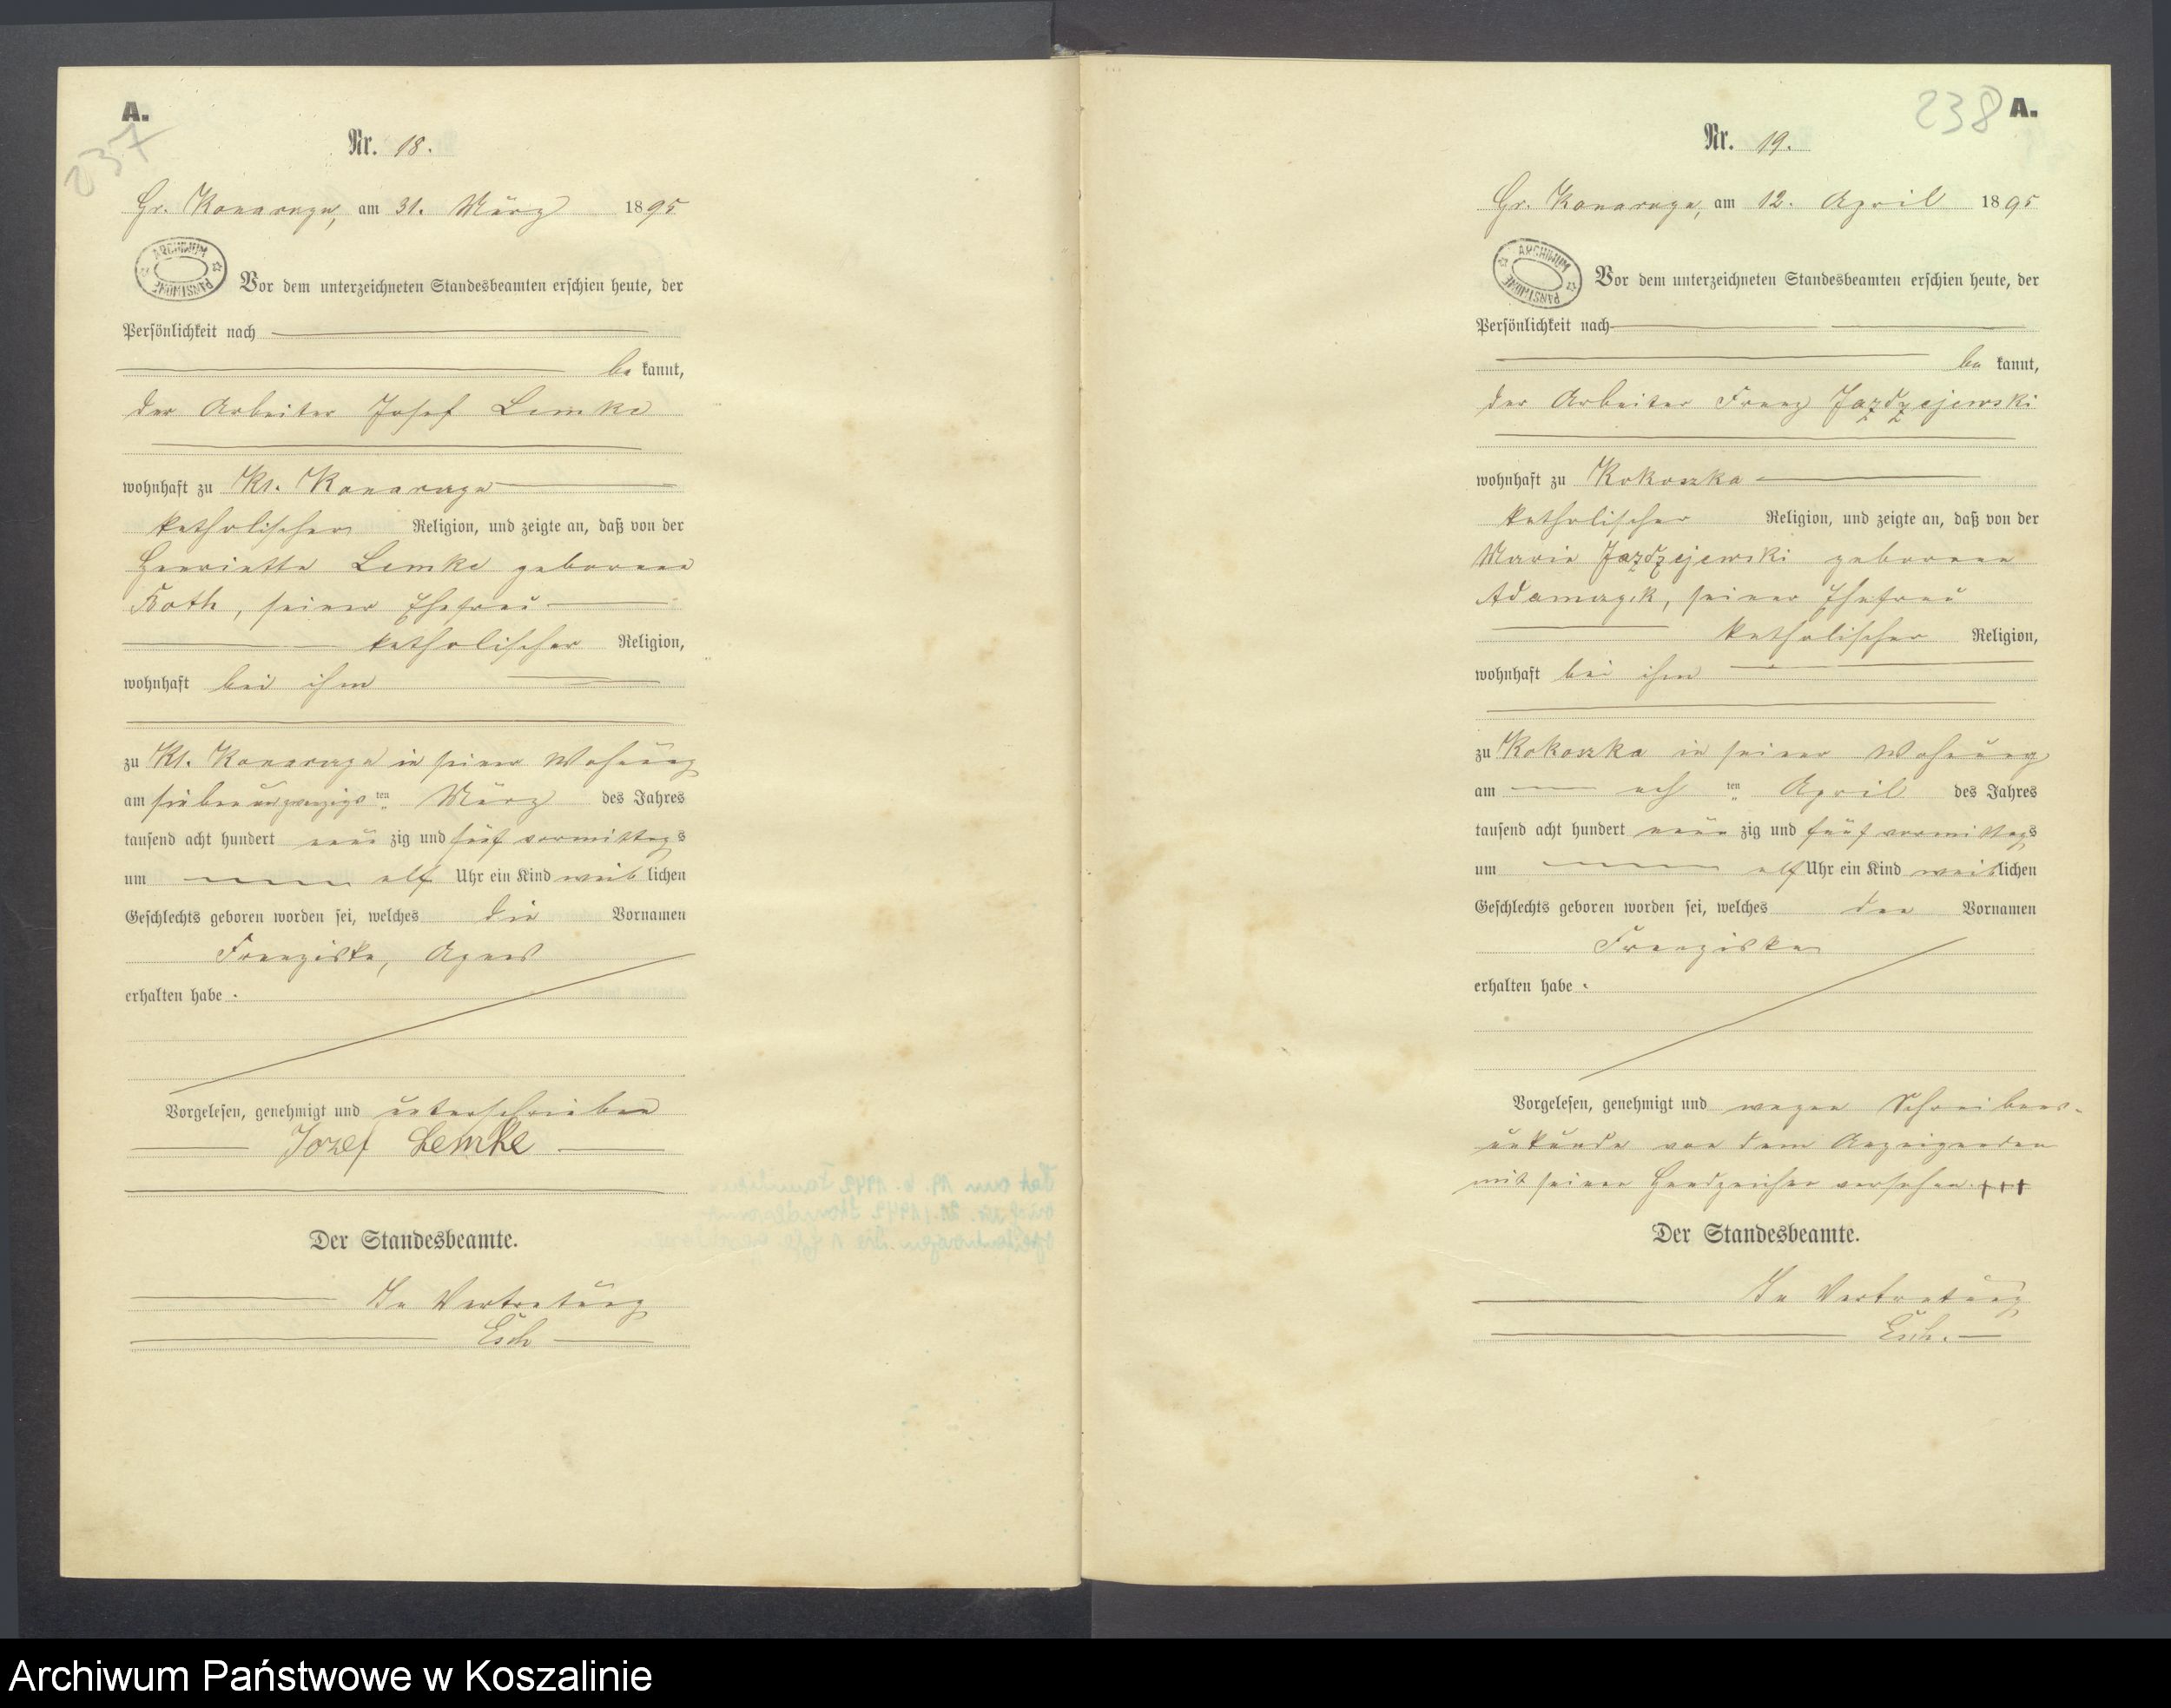 A.
237
Nr. 18.
Gr. Konarzyn, am 31. März 1895
ARCHIWUM PAŃSTWOWE
Vor dem unterzeichneten Standesbeamten erschien heute, der
Persönlichkeit nach
be kannt,
der Arbeiter Josef Lemke
wohnhaft zu Kl. Konarzyn
katholischer Religion, und zeigte an, daß von der
Henriette Lemke geborene
Both, seiner Ehefrau
katholischer Religion,
wohnhaft bei ihm
zu Kl. Konarzyn in seiner Wohnung
am siebenundzwanzigsten März des Jahres
tausend acht hundert neunzig und fünf vormittags
um elf Uhr ein Kind weiblichen
Geschlechts geboren worden sei, welches die Vornamen
Franziska, Agnes
erhalten habe.
Vorgelesen, genehmigt und unterschrieben
Jozef Lemke
Der Standesbeamte.
In Vertretung
Esch
238 A.
Nr. 19.
Gr. Konarzyn, am 12. April 1895
ARCHIWUM PAŃSTWOWE
Vor dem unterzeichneten Standesbeamten erschien heute, der
Persönlichkeit nach
be kannt,
der Arbeiter Franz Jazdzejewski
wohnhaft zu Kokoszka
katholischer Religion, und zeigte an, daß von der
Marie Jazdzejewski geborene
Adamczyk, seiner Ehefrau
katholischer Religion,
wohnhaft bei ihm
zu Kokoszka in seiner Wohnung
am achten April des Jahres
tausend acht hundert neunzig und fünf vormittags
um elf Uhr ein Kind weiblichen
Geschlechts geboren worden sei, welches den Vornamen
Franziska
erhalten habe.
Vorgelesen, genehmigt und wegen Schreibens-
unkunde von dem Anzeigenden
mit seinem Handzeichen versehen. +++
Der Standesbeamte.
In Vertretung
Esch.
Archiwum Państwowe w Koszalinie